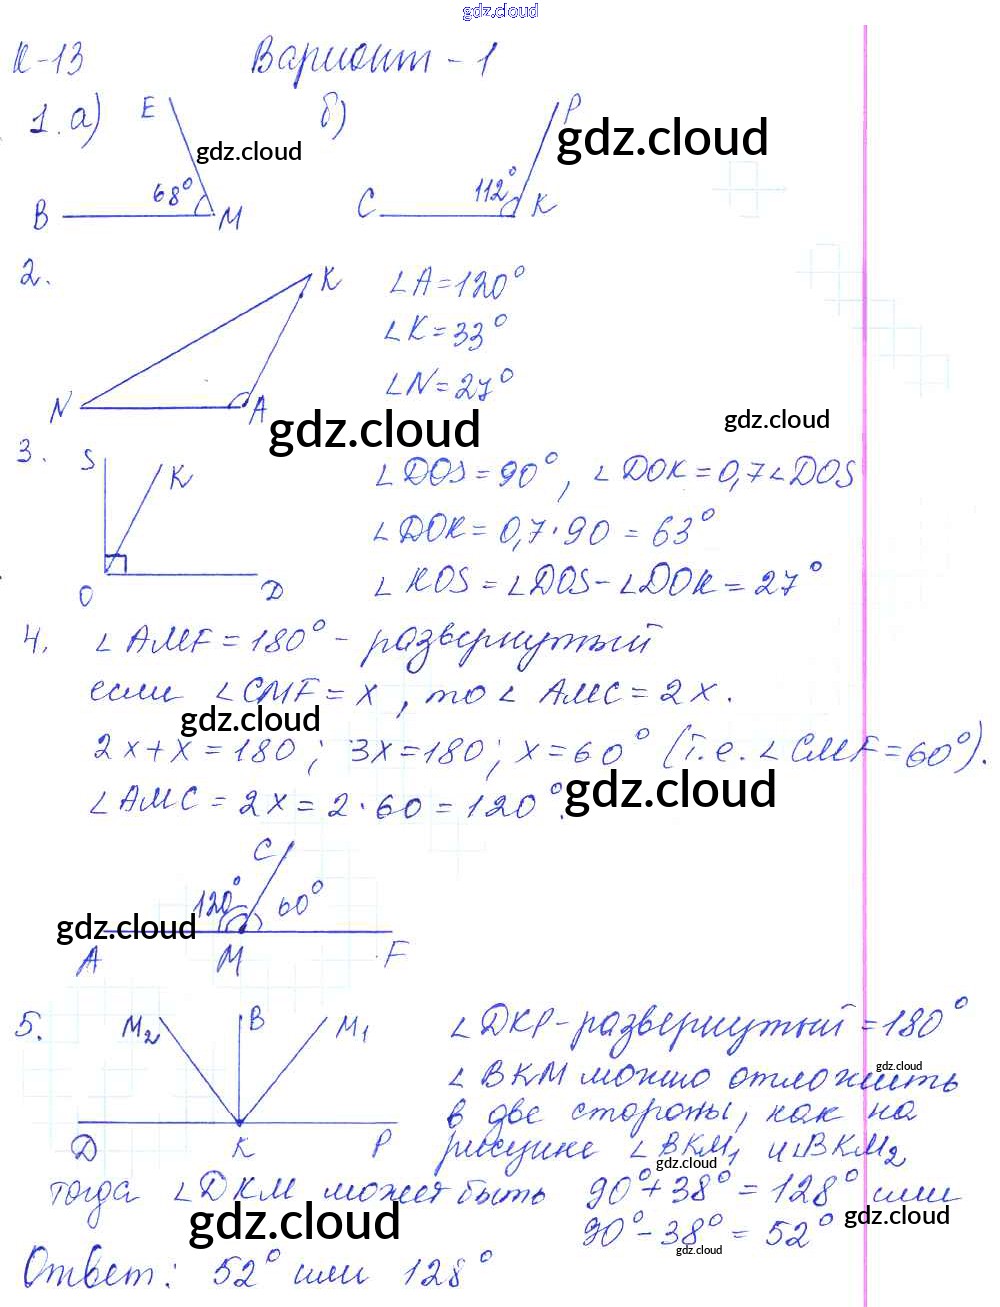 gdz.cloud
К-13 Вариант - 1
1. а) E б) P
gdz.cloud gdz.cloud
68° 112°
B M C K
2. K ∠A=120°
∠K=33°
∠N=27°
N A
gdz.cloud gdz.cloud
3. S K ∠DOS=90°, ∠DOK=0,7∠DOS
∠DOK=0,7·90=63°
O D ∠KOS=∠DOS-∠DOK=27°
4. ∠AMF=180°- развернутый
если ∠CMF=x, то ∠AMC=2x.
gdz.cloud
2x+x=180; 3x=180; x=60° (т.е. ∠CMF=60°).
∠AMC=2x=2·60=120°.
gdz.cloud
C
120° 60°
gdz.cloud
A M F
5. M₂ B M₁ ∠DKP-развернутый=180°
gdz.cloud
∠BKM можно отложить
в две стороны, как на
D K P рисунке ∠BKM₁ и ∠BKM₂
gdz.cloud
тогда ∠DKM может быть 90°+38°=128° или
gdz.cloud gdz.cloud
90°-38°=52°
gdz.cloud
Ответ: 52° или 128°